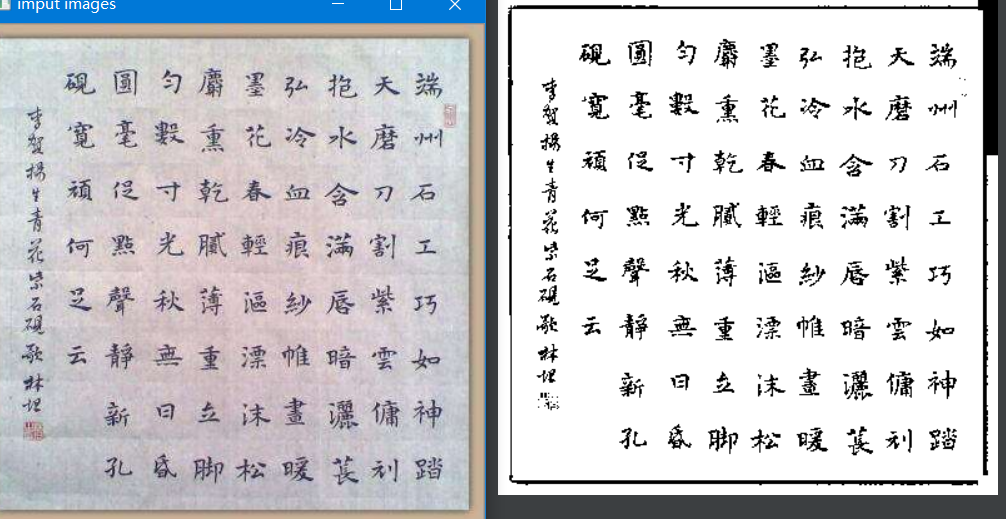 imput images
端州石工巧如神踏
天磨刀割紫雲傭刓
抱水含滿唇暗灑萇
弘冷血痕紗帷晝暖
墨花春輕漚漂沫松
麝熏乾膩薄重立脚
勻數寸光秋無日昏
圓毫促點聲靜新孔
硯寬頑何足云
李賀楊生青花紫石硯歌 林
端州石工巧如神踏
天磨刀割紫雲傭刓
抱水含滿唇暗灑萇
弘冷血痕紗帷晝暖
墨花春輕漚漂沫松
麝熏乾膩薄重立脚
勻數寸光秋無日昏
圓毫促點聲靜新孔
硯寬頑何足云
李賀楊生青花紫石硯歌 林